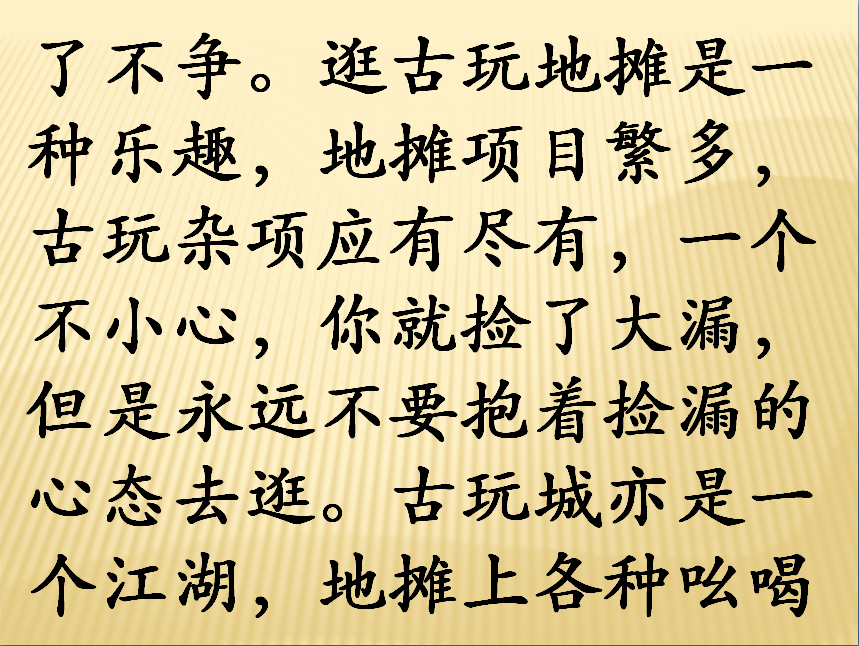 了不争。逛古玩地摊是一
种乐趣，地摊项目繁多，
古玩杂项应有尽有，一个
不小心，你就捡了大漏，
但是永远不要抱着捡漏的
心态去逛。古玩城亦是一
个江湖，地摊上各种吆喝